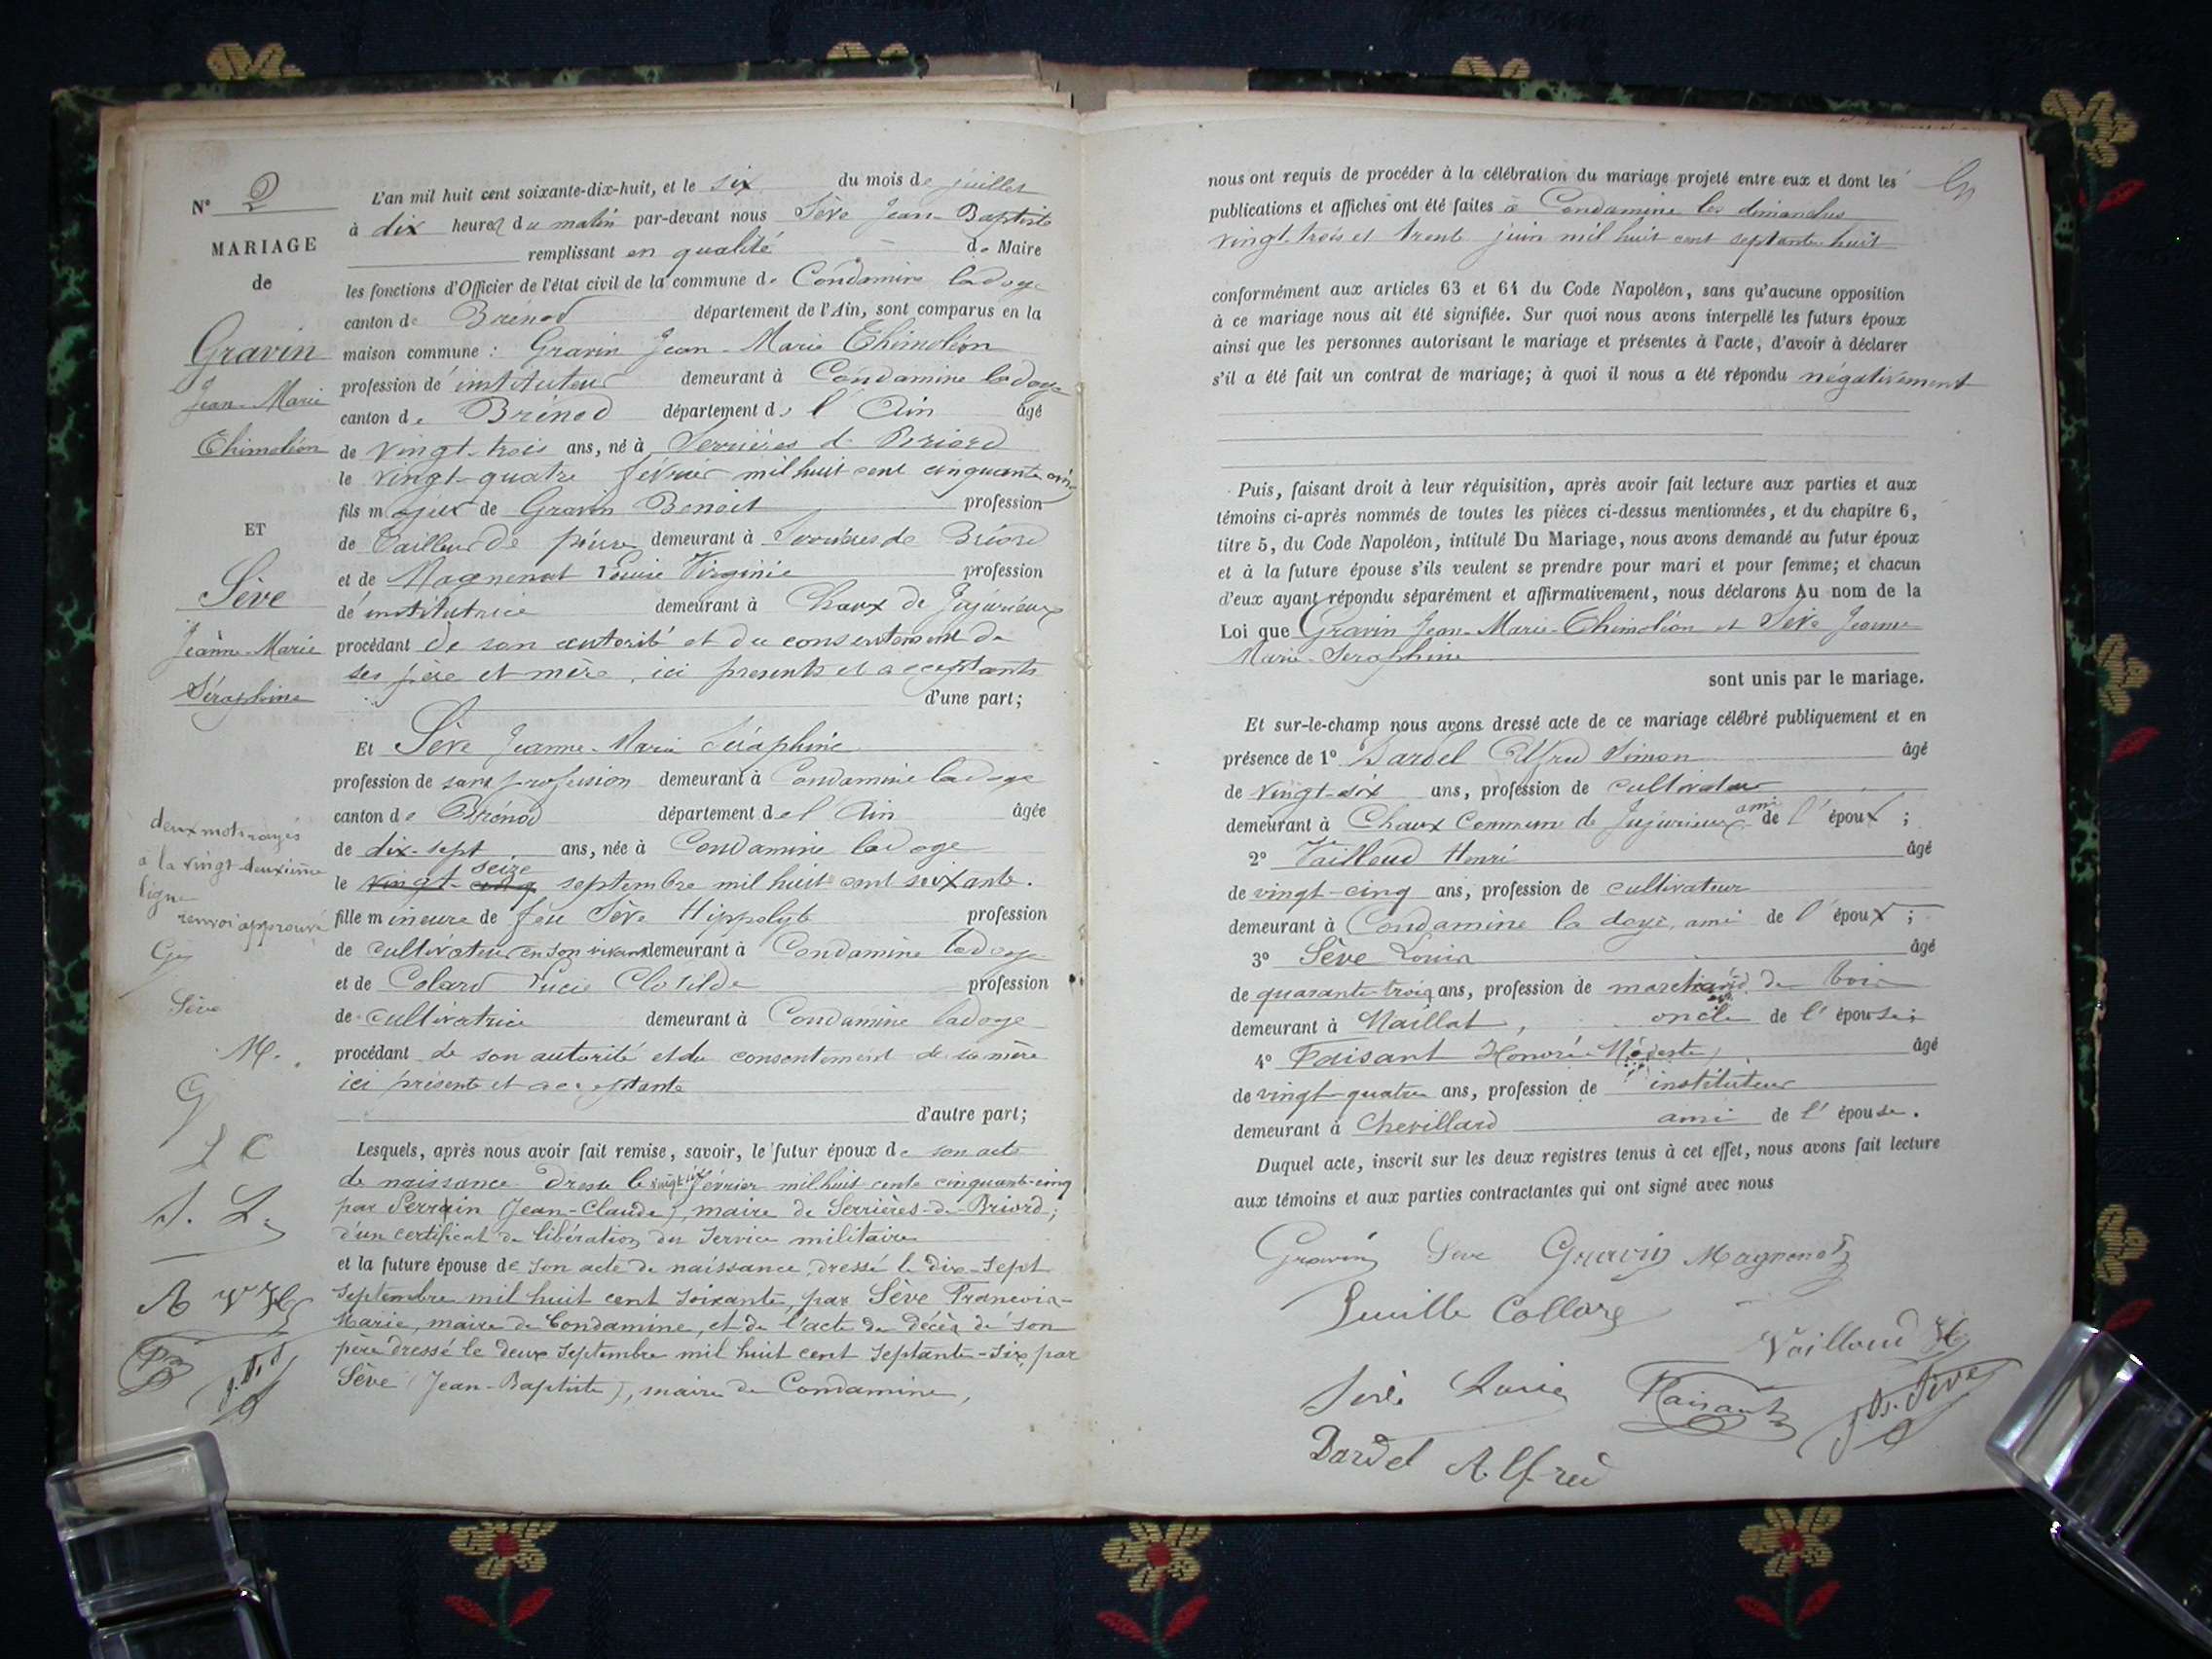 N° 2
MARIAGE
de
Gravin
Jean-Marie
Thimoléon
ET
Sève
Jeanne-Marie
Séraphine
deux mots rayés
à la vingt-deuxième
ligne
renvoi approuvé
G
Sève
M.
G
L C
S. L.
A V H
L'an mil huit cent soixante-dix-huit, et le six du mois de juillet
à dix heures du matin par-devant nous Sève Jean-Baptiste
remplissant en qualité de Maire
les fonctions d'Officier de l'état civil de la commune de Condamine ladoye
canton de Brénod département de l'Ain, sont comparus en la
maison commune : Gravin Jean-Marie Thimoléon
profession de instituteur demeurant à Condamine ladoye
canton de Brénod département de l'Ain âgé
de vingt-trois ans, né à Serrières de Briord
le vingt-quatre février mil huit cent cinquante cinq
fils majeur de Gravin Benoit profession
de Tailleur de pierre demeurant à Serrières de Briord
et de Magnenat Louise Virginie profession
de institutrice demeurant à Chaux de Jujurieux
procédant de son autorité et du consentement de
ses père et mère, ici présents et acceptants
d'une part;
Et Sève Jeanne-Marie Séraphine
profession de sans profession demeurant à Condamine ladoye
canton de Brénod département de l'Ain âgée
de dix-sept ans, née à Condamine ladoye
seize
le vingt-cinq septembre mil huit cent soixante.
fille mineure de feu Sève Hippolyte profession
de cultivateur en son vivant demeurant à Condamine ladoye
et de Colard Lucie Clotilde profession
de cultivatrice demeurant à Condamine ladoye
procédant de son autorité et du consentement de sa mère
ici présente et acceptante
d'autre part;
Lesquels, après nous avoir fait remise, savoir, le futur époux de son acte
de naissance dressé le vingt-six février mil huit cent cinquante-cinq
par Perrain (Jean-Claude), maire de Serrières-de-Briord;
d'un certificat de libération du service militaire
et la future épouse de son acte de naissance, dressé le dix-sept
septembre mil huit cent soixante, par Sève François-
Marie, maire de Condamine, et de l'acte de décès de son
père dressé le deux septembre mil huit cent septante-six, par
Sève (Jean-Baptiste), maire de Condamine,
nous ont requis de procéder à la célébration du mariage projeté entre eux et dont les
publications et affiches ont été faites à Condamine les dimanches
vingt-trois et trente juin mil huit cent septante huit
conformément aux articles 63 et 64 du Code Napoléon, sans qu'aucune opposition
à ce mariage nous ait été signifiée. Sur quoi nous avons interpellé les futurs époux
ainsi que les personnes autorisant le mariage et présentes à l'acte, d'avoir à déclarer
s'il a été fait un contrat de mariage; à quoi il nous a été répondu négativement
Puis, faisant droit à leur réquisition, après avoir fait lecture aux parties et aux
témoins ci-après nommés de toutes les pièces ci-dessus mentionnées, et du chapitre 6,
titre 5, du Code Napoléon, intitulé Du Mariage, nous avons demandé au futur époux
et à la future épouse s'ils veulent se prendre pour mari et pour femme; et chacun
d'eux ayant répondu séparément et affirmativement, nous déclarons Au nom de la
Loi que Gravin Jean-Marie-Thimoléon et Sève Jeanne
Marie-Seraphine
sont unis par le mariage.
Et sur-le-champ nous avons dressé acte de ce mariage célébré publiquement et en
présence de 1° Dardel Alfred Simon âgé
de vingt-six ans, profession de cultivateur
demeurant à Chaux Commune de Jujurieux ami de l'époux ;
2° Vailloud Henri âgé
de vingt-cinq ans, profession de cultivateur
demeurant à Condamine la doye, ami de l'époux ;
3° Sève Louis âgé
de quarante-trois ans, profession de marchand de bois
demeurant à Maillat, oncle de l'épouse;
4° Faisant Honoré Modeste, âgé
de vingt-quatre ans, profession de instituteur
demeurant à Chevillard ami de l'épouse.
Duquel acte, inscrit sur les deux registres tenus à cet effet, nous avons fait lecture
aux témoins et aux parties contractantes qui ont signé avec nous
Gravin Seve Gravin Magnenat
Collard
Vailloud H
Sève Louis Faisant J. B. Sève
Dardel Alfred